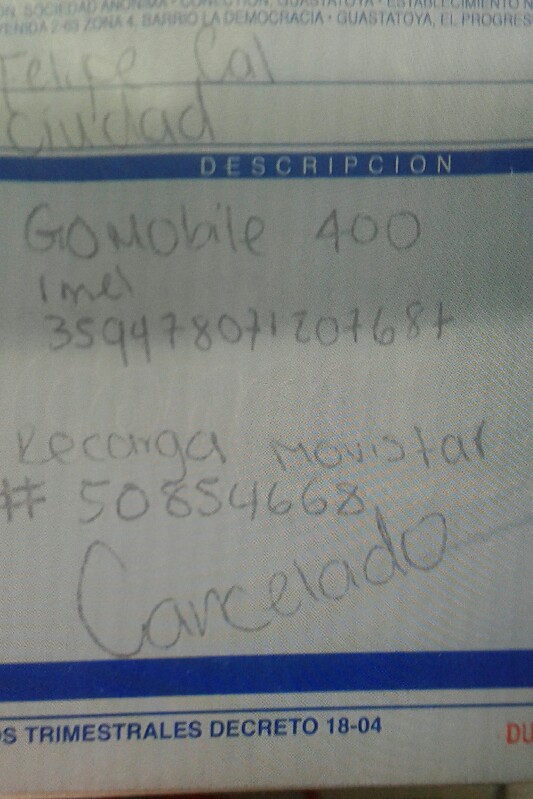 ON, SOCIEDAD ANONIMA · CONECTION, GUASTATOYA · ESTABLECIMIENTO N
VENIDA 2-63 ZONA 4, BARRIO LA DEMOCRACIA · GUASTATOYA, EL PROGRES
Felipe Cal
Ciudad
DESCRIPCION
GOMobile 400
Imei
359478071207687
Recarga Movistar
# 50854668
Cancelado
OS TRIMESTRALES DECRETO 18-04
DU